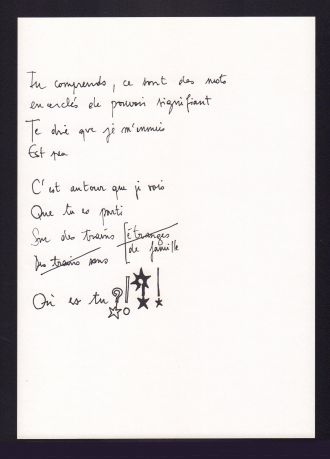 Tu comprends, ce sont des mots
encerclés de pouvoir signifiant
Te dire que je m'ennuie
Est peu
C'est autour que je vois
Que tu es parti
Sur des trains [étranges
Des trains sans [de famille
Où es tu ?!!!